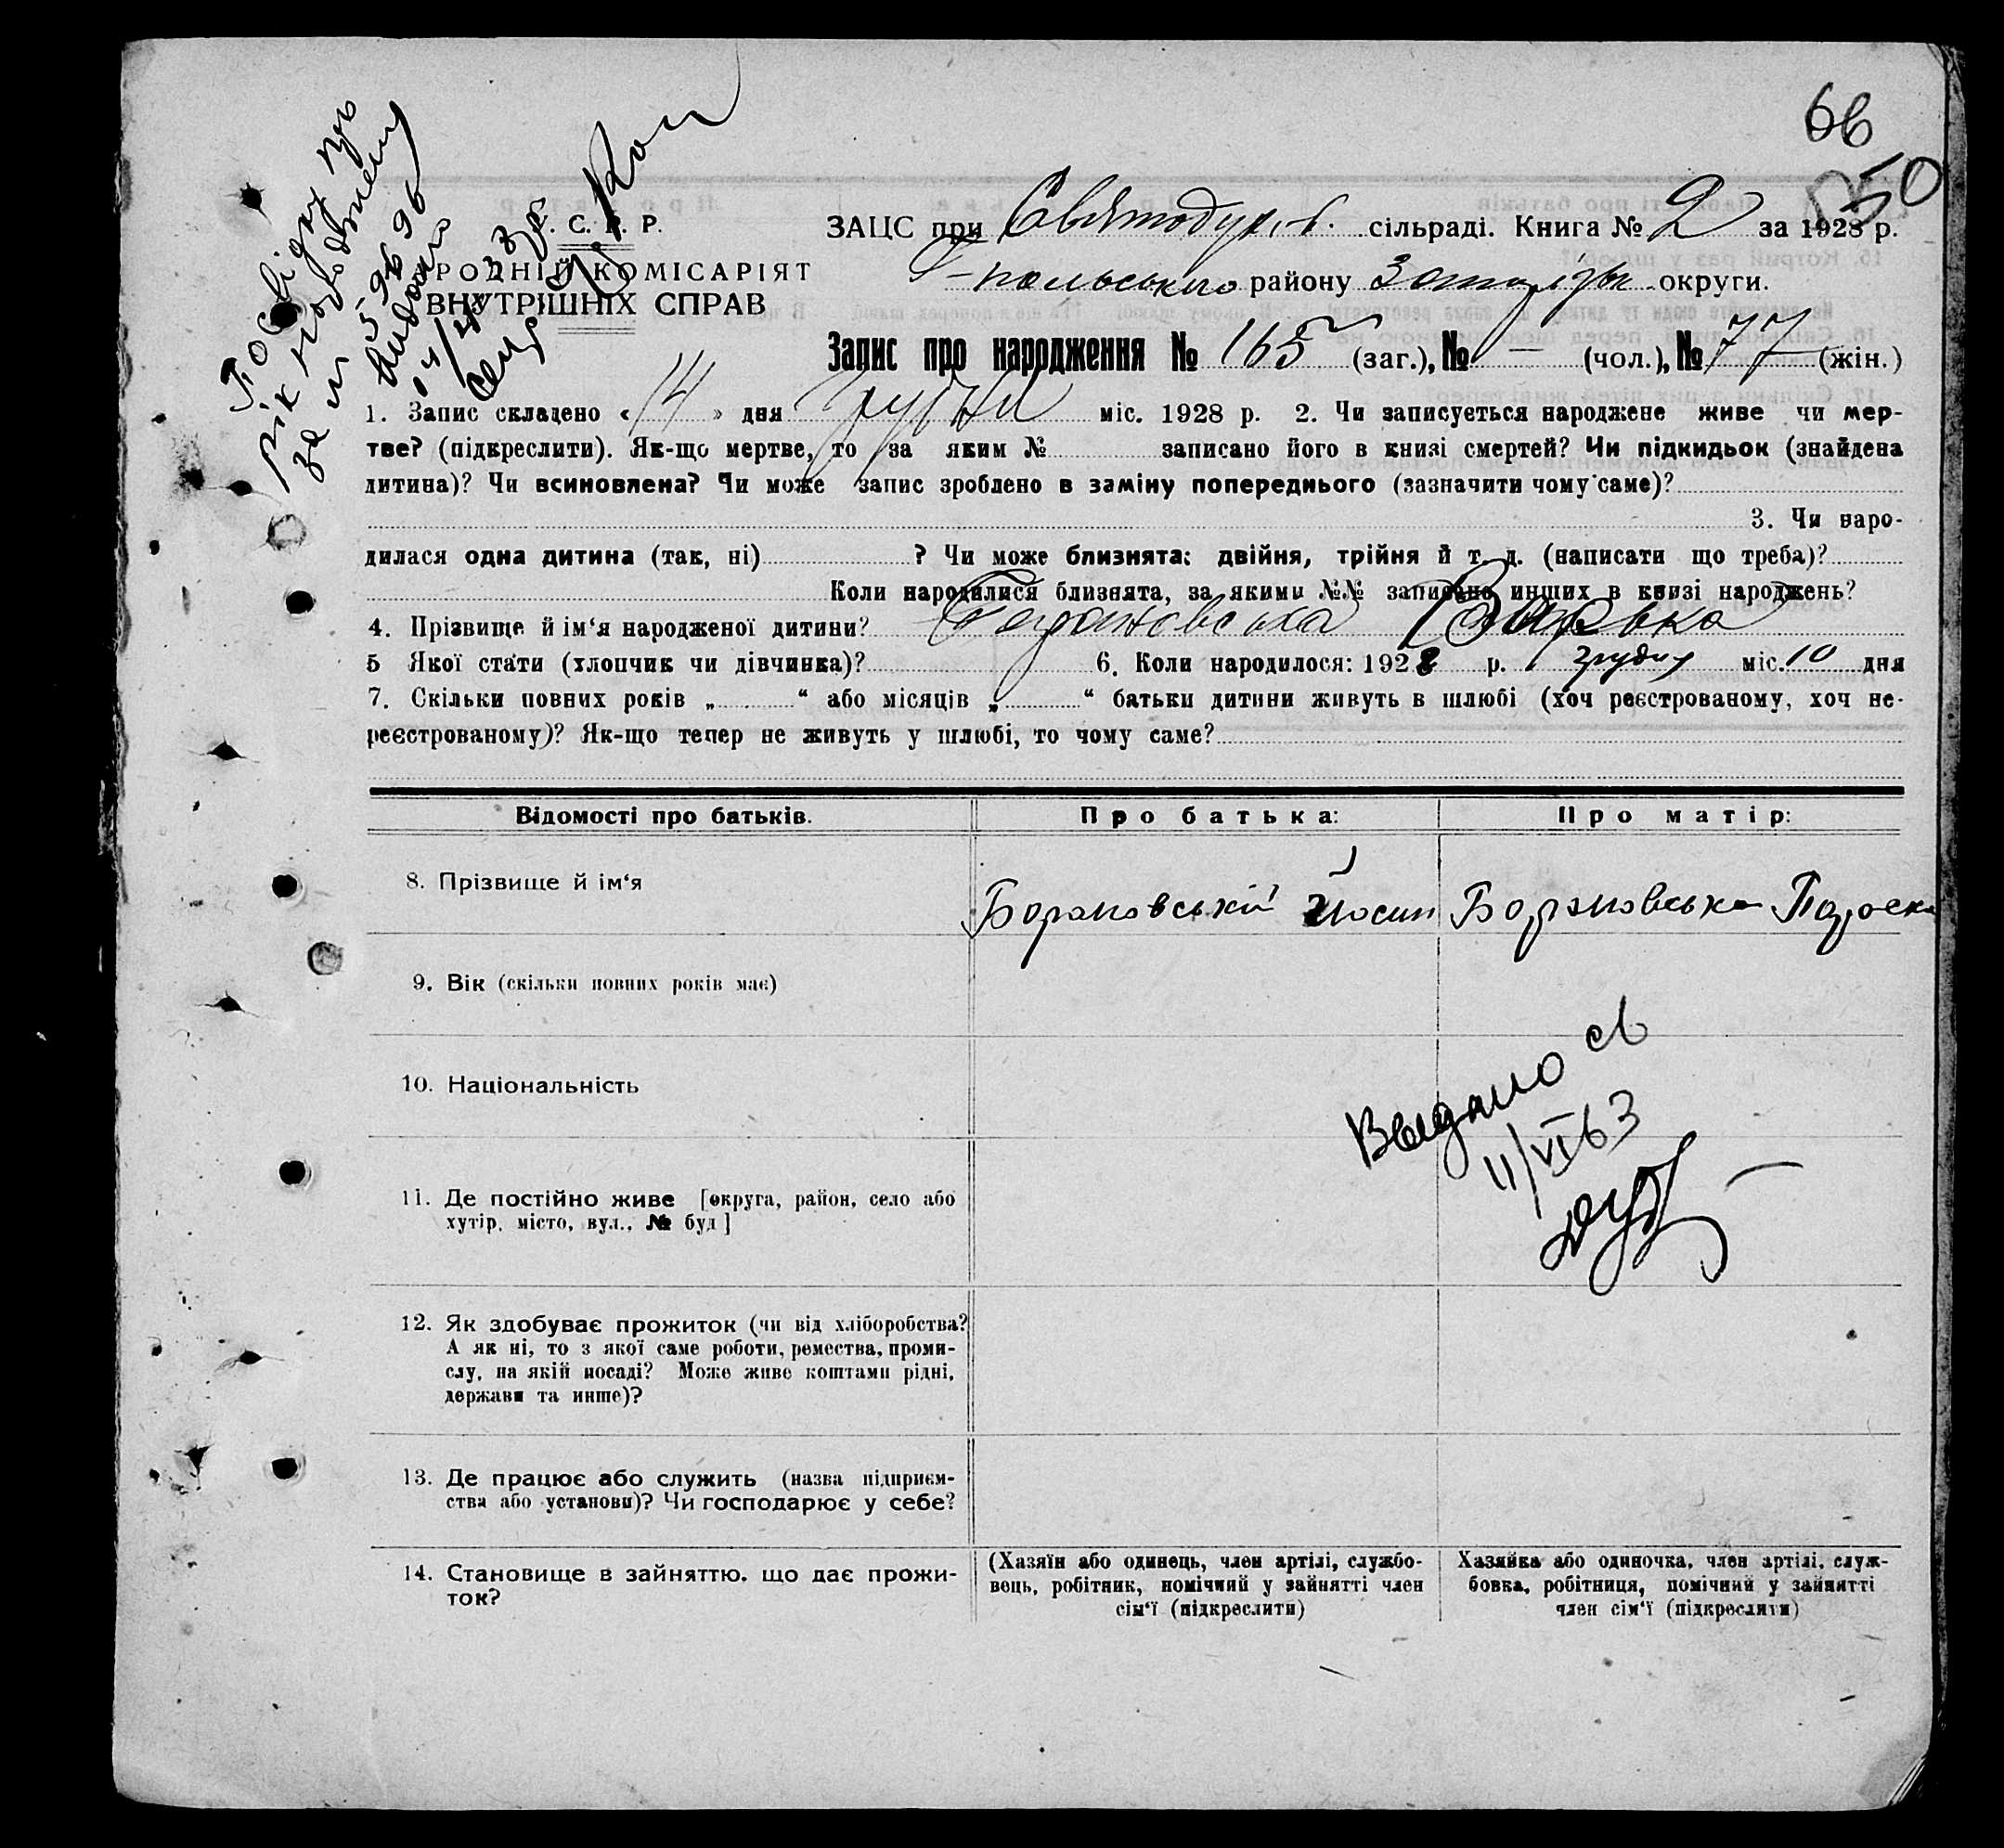 66
50
Посвідку про
рік народження
за № 59696
видано
У. С. Р. Р.
НАРОДНІЙ КОМІСАРІЯТ
ВНУТРІШНІХ СПРАВ
ЗАЦС при сільраді. Книга № 2 за 1928 р.
району округи.
Запис про народження № 165 (заг.), № — (чол.), № 77 (жін.)
1. Запис складено « 14 » дня грудня міс. 1928 р. 2. Чи записується народжене живе чи мер-
тве? (підкреслити). Як-що мертве, то за яким № записано його в книзі смертей? Чи підкидьок (знайдена
дитина)? Чи всиновлена? Чи може запис зроблено в заміну попереднього (зазначити чому саме)?
3. Чи наро-
дилася одна дитина (так, ні) ? Чи може близнята: двійня, трійня й т. д. (написати що треба)?
Коли народилися близнята, за якими №№ записано инших в книзі народжень?
4. Прізвище й ім‘я народженої дитини? Барановська Варвка
5 Якої стати (хлопчик чи дівчинка)? 6. Коли народилося: 1928 р. грудня міс. 10 дня
7. Скільки повних років „ “ або місяців „ “ батьки дитини живуть в шлюбі (хоч реєстрованому, хоч не-
реєстрованому)? Як-що тепер не живуть у шлюбі, то чому саме?
Відомості про батьків. Про батька: Про матір:
8. Прізвище й ім‘я Барановський Йосип Барановська Параска
9. Вік (скільки повних років має)
10. Національність
Выдано св
11/VI 63
11. Де постійно живе [округа, район, село або
хутір, місто, вул., № буд]
12. Як здобуває прожиток (чи від хліборобства?
А як ні, то з якої саме роботи, ремества, проми-
слу, на якій посаді? Може живе коштами рідні,
держави та инше)?
13. Де працює або служить (назва підприєм-
ства або установи)? Чи господарює у себе?
14. Становище в зайняттю, що дає прожи-
ток?
(Хазяїн або одинець, член артілі, службо-
вець, робітник, помічний у зайнятті член
сім‘ї (підкреслити)
Хазяйка або одиночка, член артілі, служ-
бовка, робітниця, помічний у зайнятті
член сім‘ї (підкреслити)